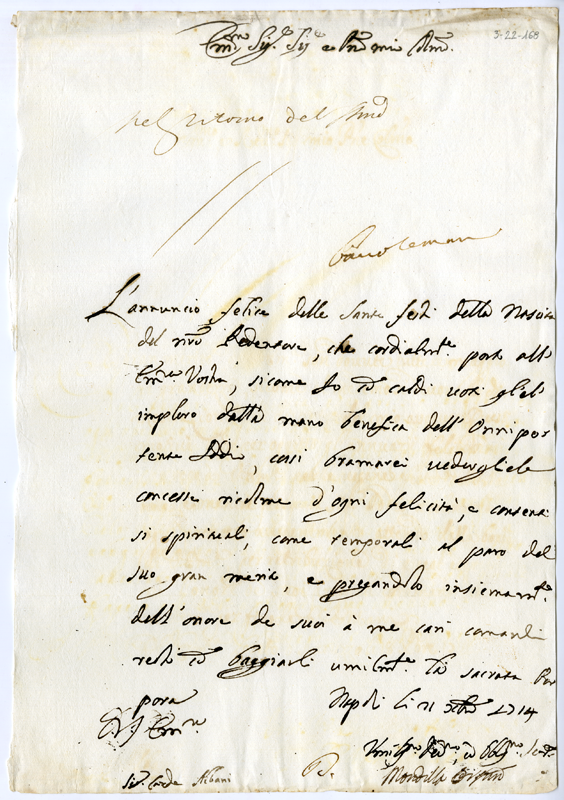 5-22-168
Em.mo Sig.r Sig.r e Pron mio
pel ritorno del
L'annuncio felice delle Sante feste della Nascita
del nro Redentore, che cordialmte porto all'
Em.za Vostra, sicome Io cō caldi voti gliel'
imploro dalla mano benefica dell' Onnipo
tente Iddio, cossì bramarei vedergliele
concesse ricolme d'ogni felicità, e contenti
si spirituali, come temporali al paro del
suo gran merito, e pregandolo insiemamte
dell' onore de suoi à me cari comandi
resto cō baggiarli umilmte la sacrata Por
pora
Napoli li 11 Xbre 1714
D. V. Em.za
Sig. Carde Albani